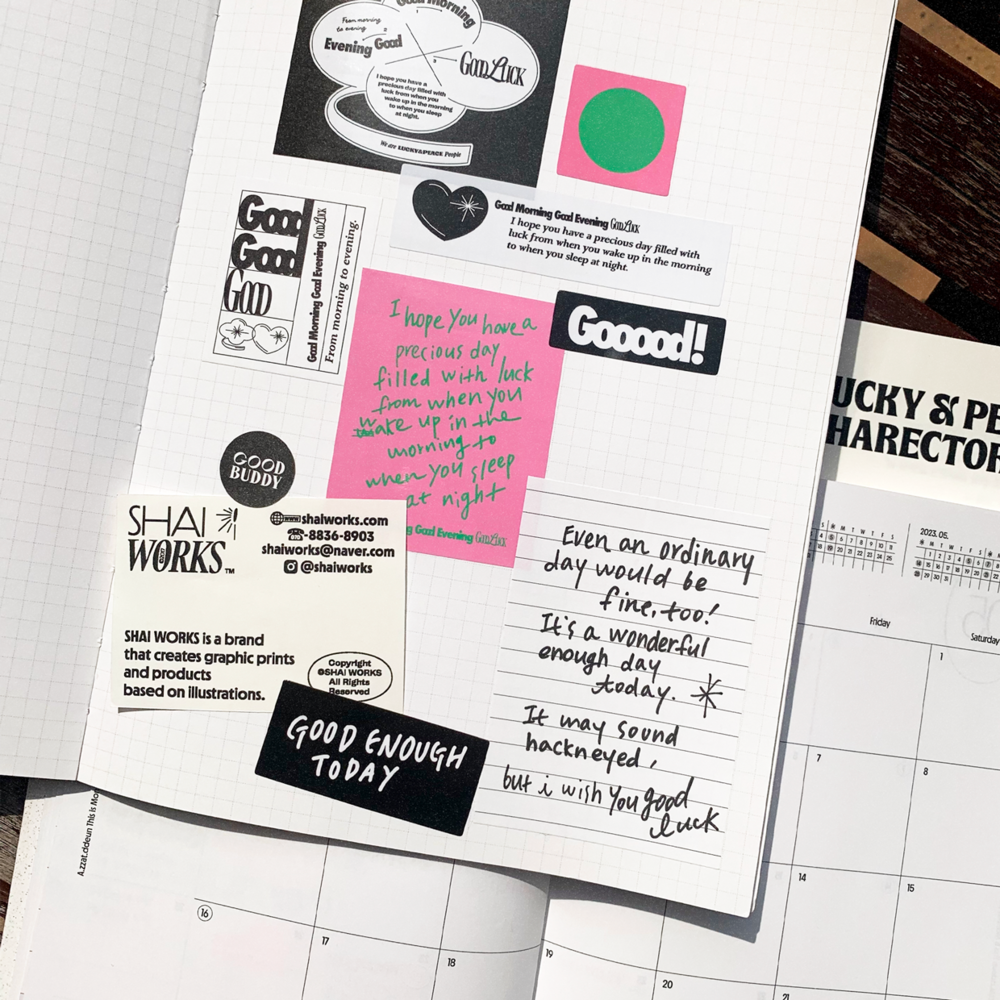 Good Morning
From morning
to evening
Evening Good
GOOD LUCK
I hope you have a
precious day filled with
luck from when you
wake up in the morning
to when you sleep
at night.
We are LUCKY&PEACE People
Good
Good
GOOD
Good Morning Good Evening GOOD LUCK
From morning to evening.
Good Morning Good Evening GOOD LUCK
I hope you have a precious day filled with
luck from when you wake up in the morning
to when you sleep at night.
Gooood!
I hope you have a
precious day
filled with luck
from when you
wake up in the
morning to
when you sleep
at night
Good Evening GOOD LUCK
GOOD
BUDDY
SHAI
WORKS™
www shaiworks.com
-8836-8903
shaiworks@naver.com
@shaiworks
SHAI WORKS is a brand
that creates graphic prints
and products
based on illustrations.
Copyright
©SHAI WORKS
All Rights
Reserved
GOOD ENOUGH
TODAY
Even an ordinary
day would be
fine, too!
It's a wonderful
enough day
today.
It may sound
hackneyed,
but i wish you good
luck
UCKY & PE
HARECTOR
2023. 05.
S M T W T F S
Friday
Saturday
1
7
8
14
15
A.zzat.ddeun This is Mo
16
17
18
19
20
21